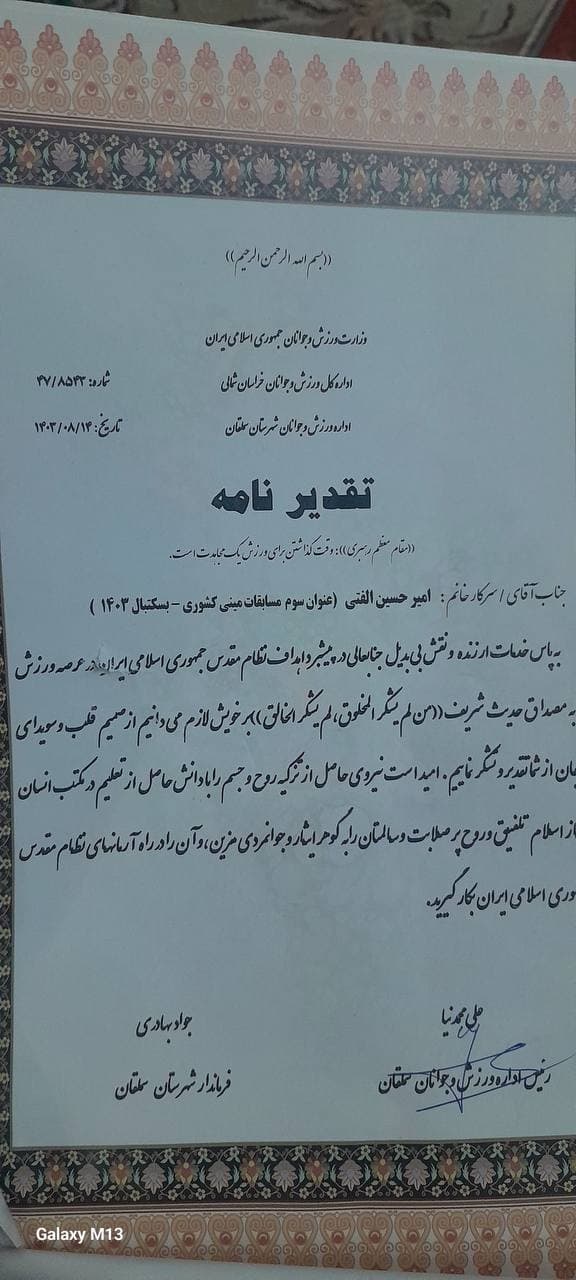 ((بسم الله الرحمن الرحیم))
وزارت ورزش و جوانان جمهوری اسلامی ایران
اداره کل ورزش و جوانان خراسان شمالی
شماره: ۴۷/۸۵۴۳
اداره ورزش و جوانان شهرستان سملقان
تاریخ: ۱۴۰۳/۰۸/۱۴
تقدیر نامه
((مقام معظم رهبری)): وقت گذاشتن برای ورزش یک مجاهدت است.
جناب آقای / سرکار خانم: امیر حسین الفتی (عنوان سوم مسابقات مینی کشوری – بسکتبال ۱۴۰۳ )
به پاس خدمات ارزنده و نقش بی بدیل جنابعالی در پیشبرد اهداف نظام مقدس جمهوری اسلامی ایران در عرصه ورزش
به مصداق حدیث شریف ((من لم یشکر المخلوق، لم یشکر الخالق)) بر خویش لازم می دانیم از صمیم قلب و سویدای
جان از شما تقدیر و تشکر نماییم. امید است نیروی حاصل از تزکیه روح و جسم را با دانش حاصل از تعلیم در مکتب انسان
ساز اسلام تلفیق و روح پر صلابت و سالمتان را به گوهر ایثار و جوانمردی مزین، و آن را در راه آرمانهای نظام مقدس
اسلامی ایران بکار گیرید.
علی محمد نیا
جواد بهادری
رئیس اداره ورزش و جوانان سملقان
فرماندار شهرستان سملقان
Galaxy M13